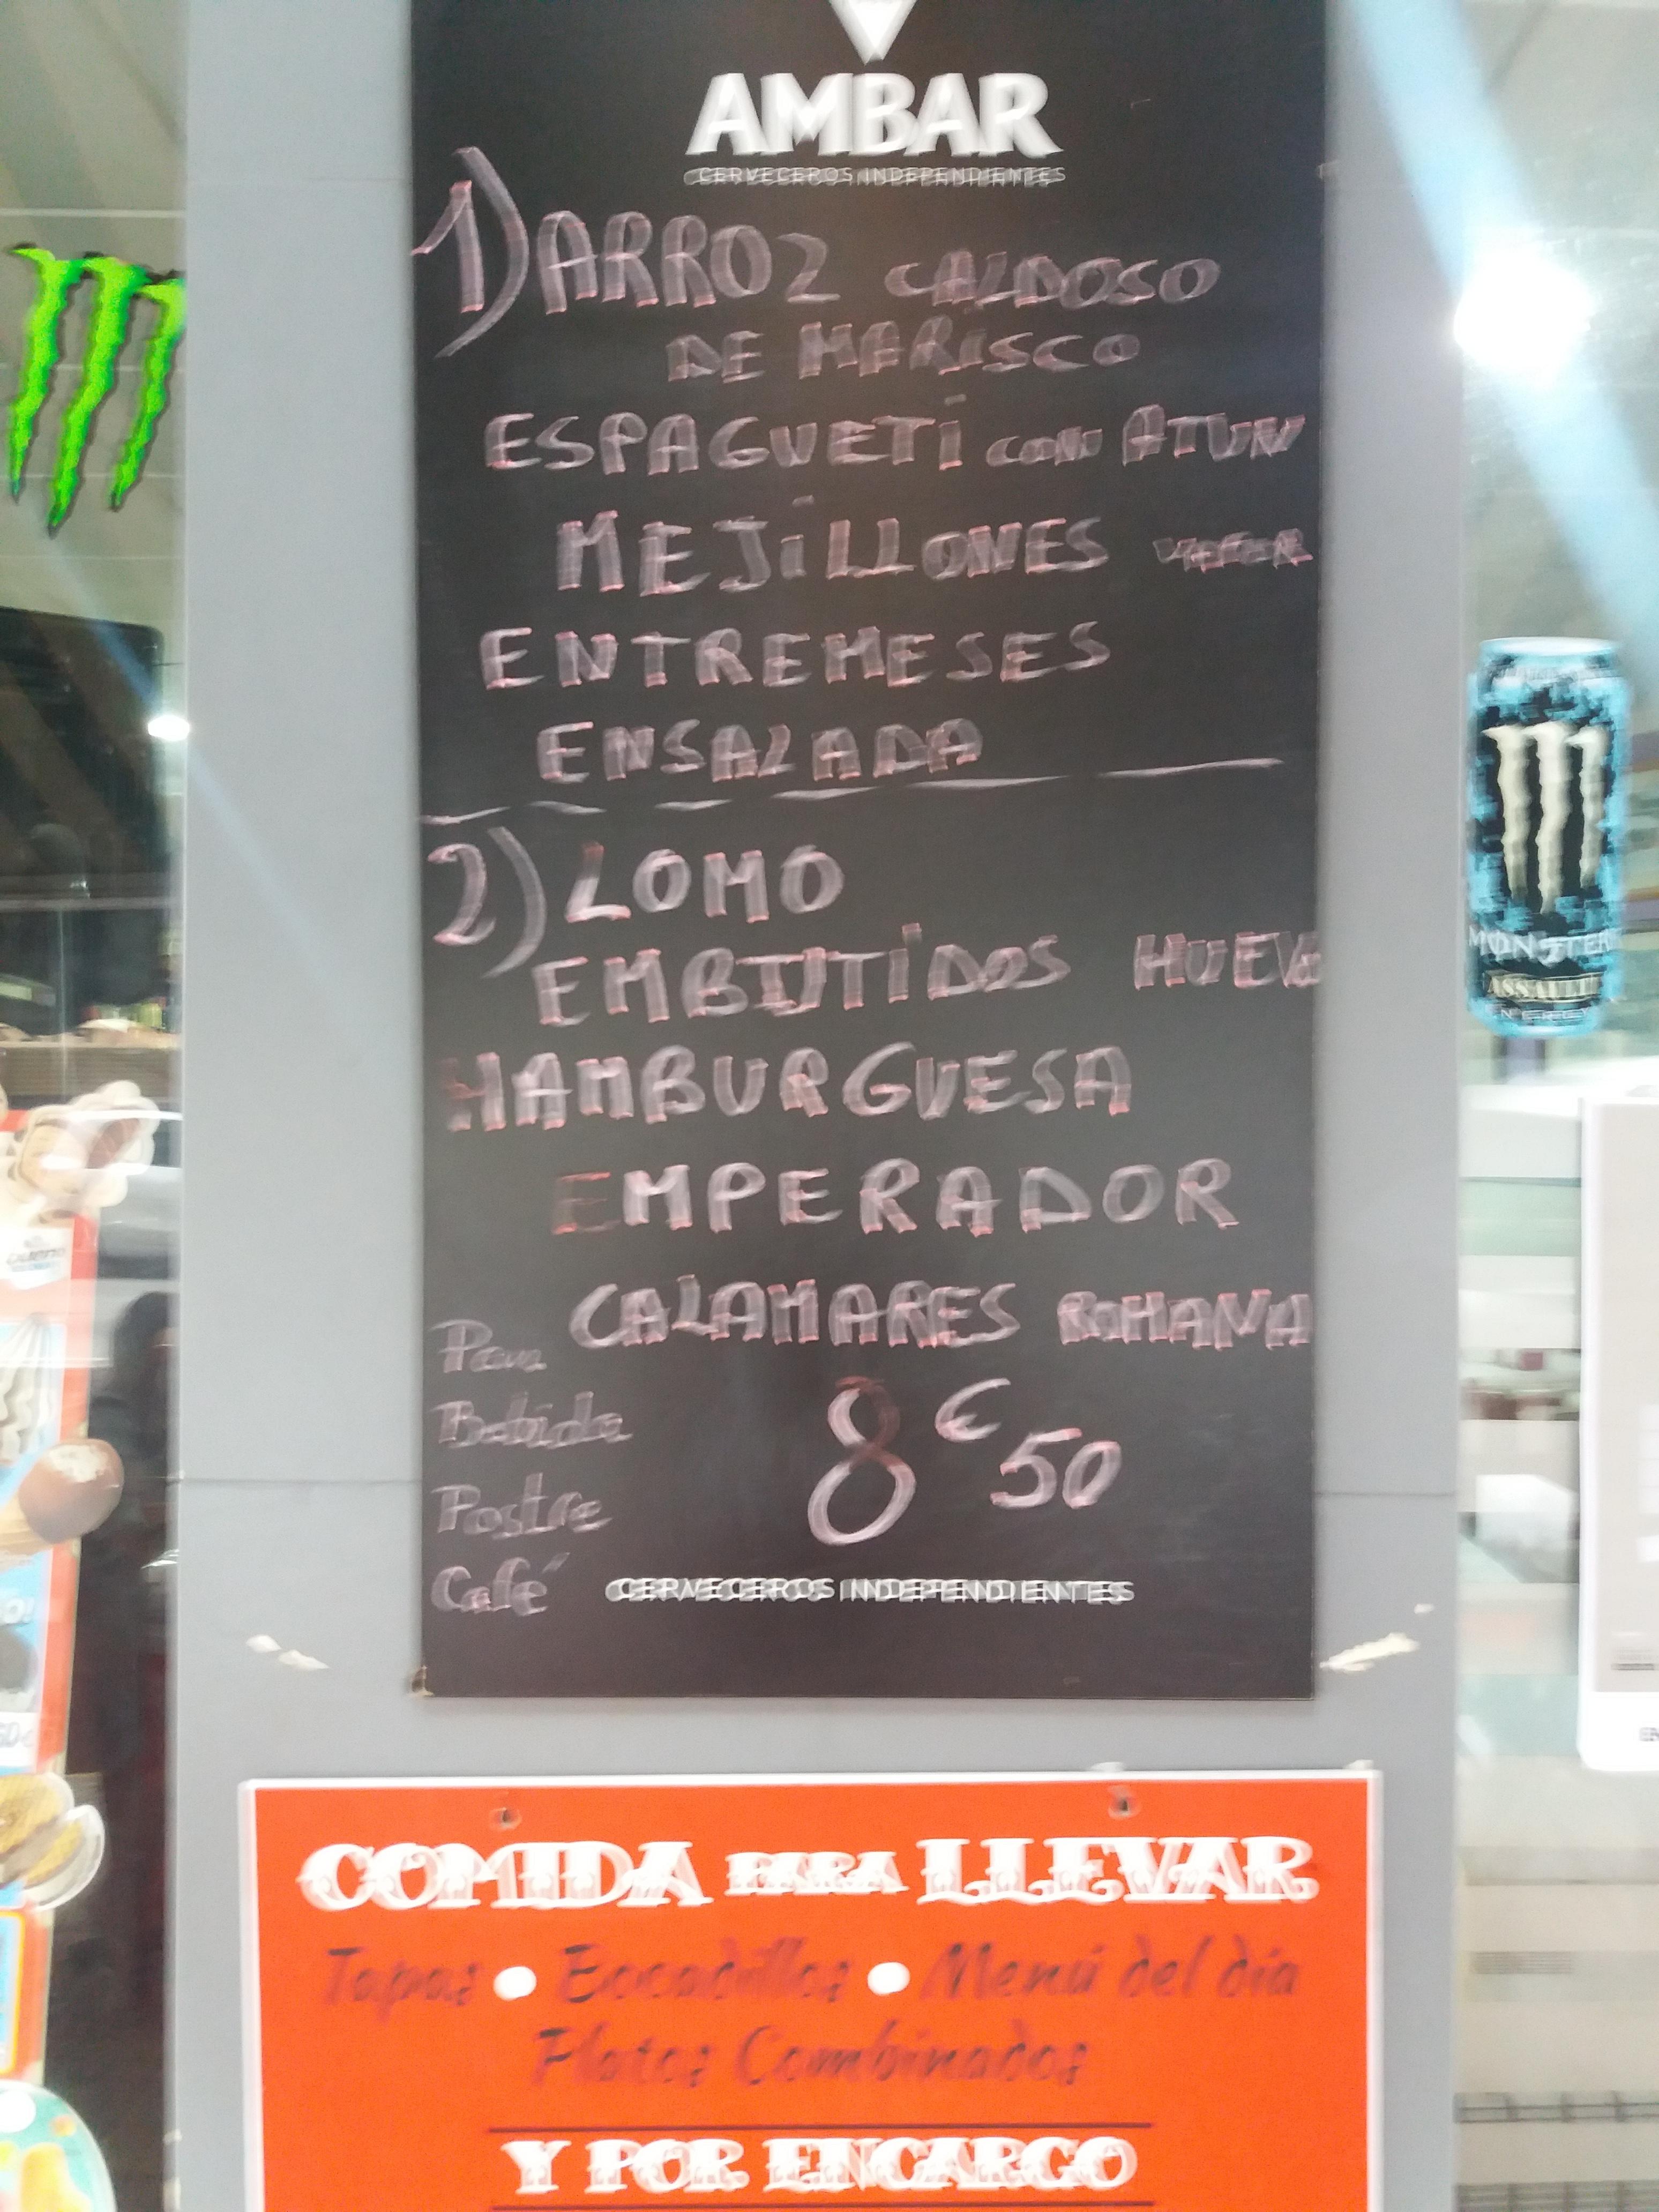 AMBAR
CERVECEROS INDEPENDIENTES
1) ARROZ CALDOSO
DE MARISCO
ESPAGUETI CON ATUN
MEJILLONES VAPOR
ENTREMESES
ENSALADA
2) LOMO
EMBUTIDOS HUEVO
HAMBURGUESA
EMPERADOR
CALAMARES ROMANA
Pan
Bebida
Postre
Café
8€50
CERVECEROS INDEPENDIENTES
COMIDA PARA LLEVAR
Tapas • Bocadillos • Menú del día
Platos Combinados
Y POR ENCARGO
MONSTER
ASSAULT
ENERGY